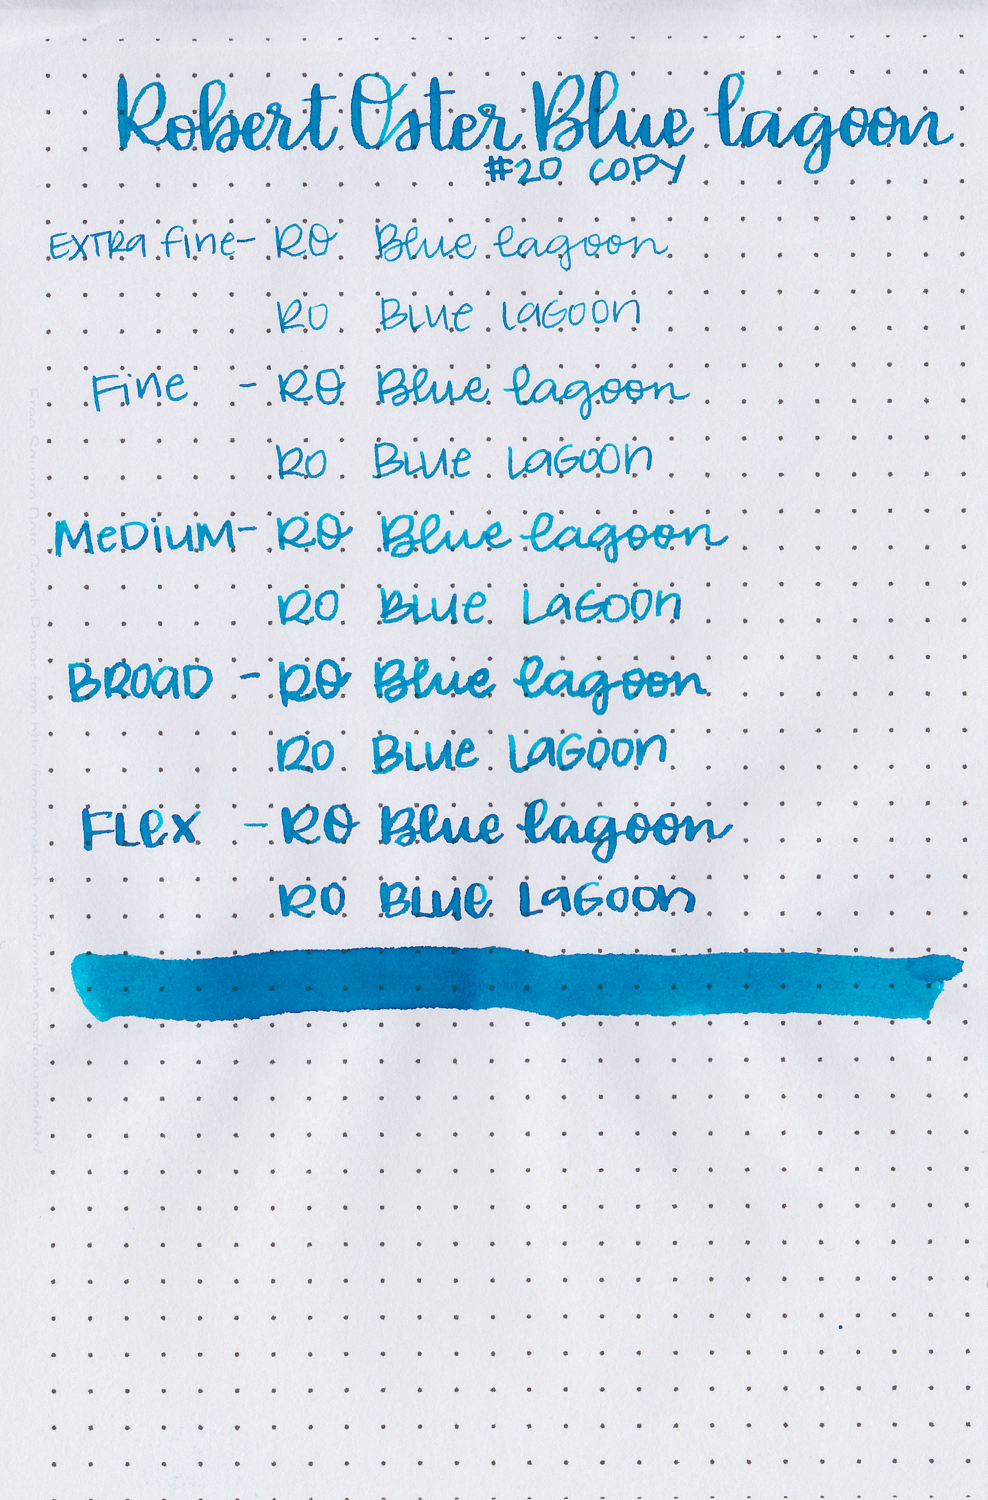 Robert Oster Blue lagoon
#20 COPY
EXTRA fine - RO Blue lagoon
RO BLUE LAGOON
Fine - RO Blue lagoon
RO BLUE LAGOON
MEDIUM - RO Blue lagoon
RO BLUE LAGOON
BROAD - RO Blue lagoon
RO BLUE LAGOON
FLEX - RO Blue lagoon
RO BLUE LAGOON